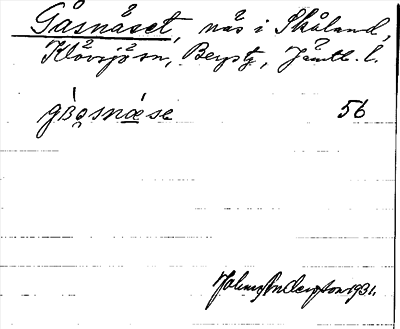 Gåsnäset, näs i Skåland,
Klövsjön, Bergs tg, Jämtl. l.
gåsnæse 56
Johnny Andersson 1931.